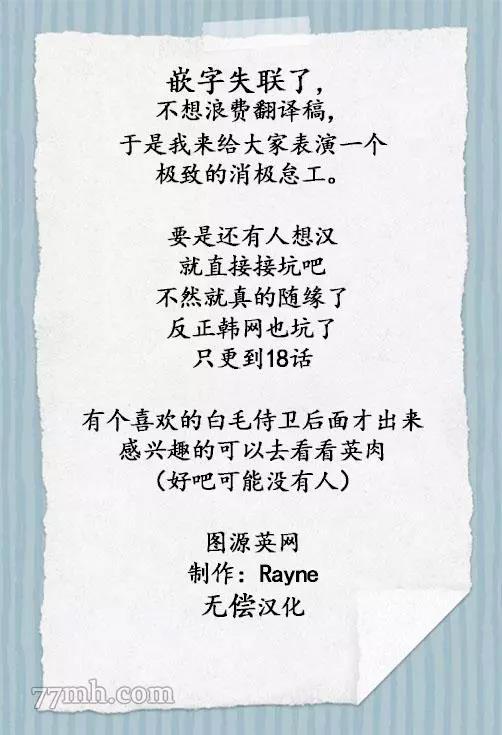 嵌字失联了，
不想浪费翻译稿，
于是我来给大家表演一个
极致的消极怠工。
要是还有人想汉
就直接接坑吧
不然就真的随缘了
反正韩网也坑了
只更到18话
有个喜欢的白毛侍卫后面才出来
感兴趣的可以去看看英肉
（好吧可能没有人）
图源英网
制作：Rayne
无偿汉化
77mh.com